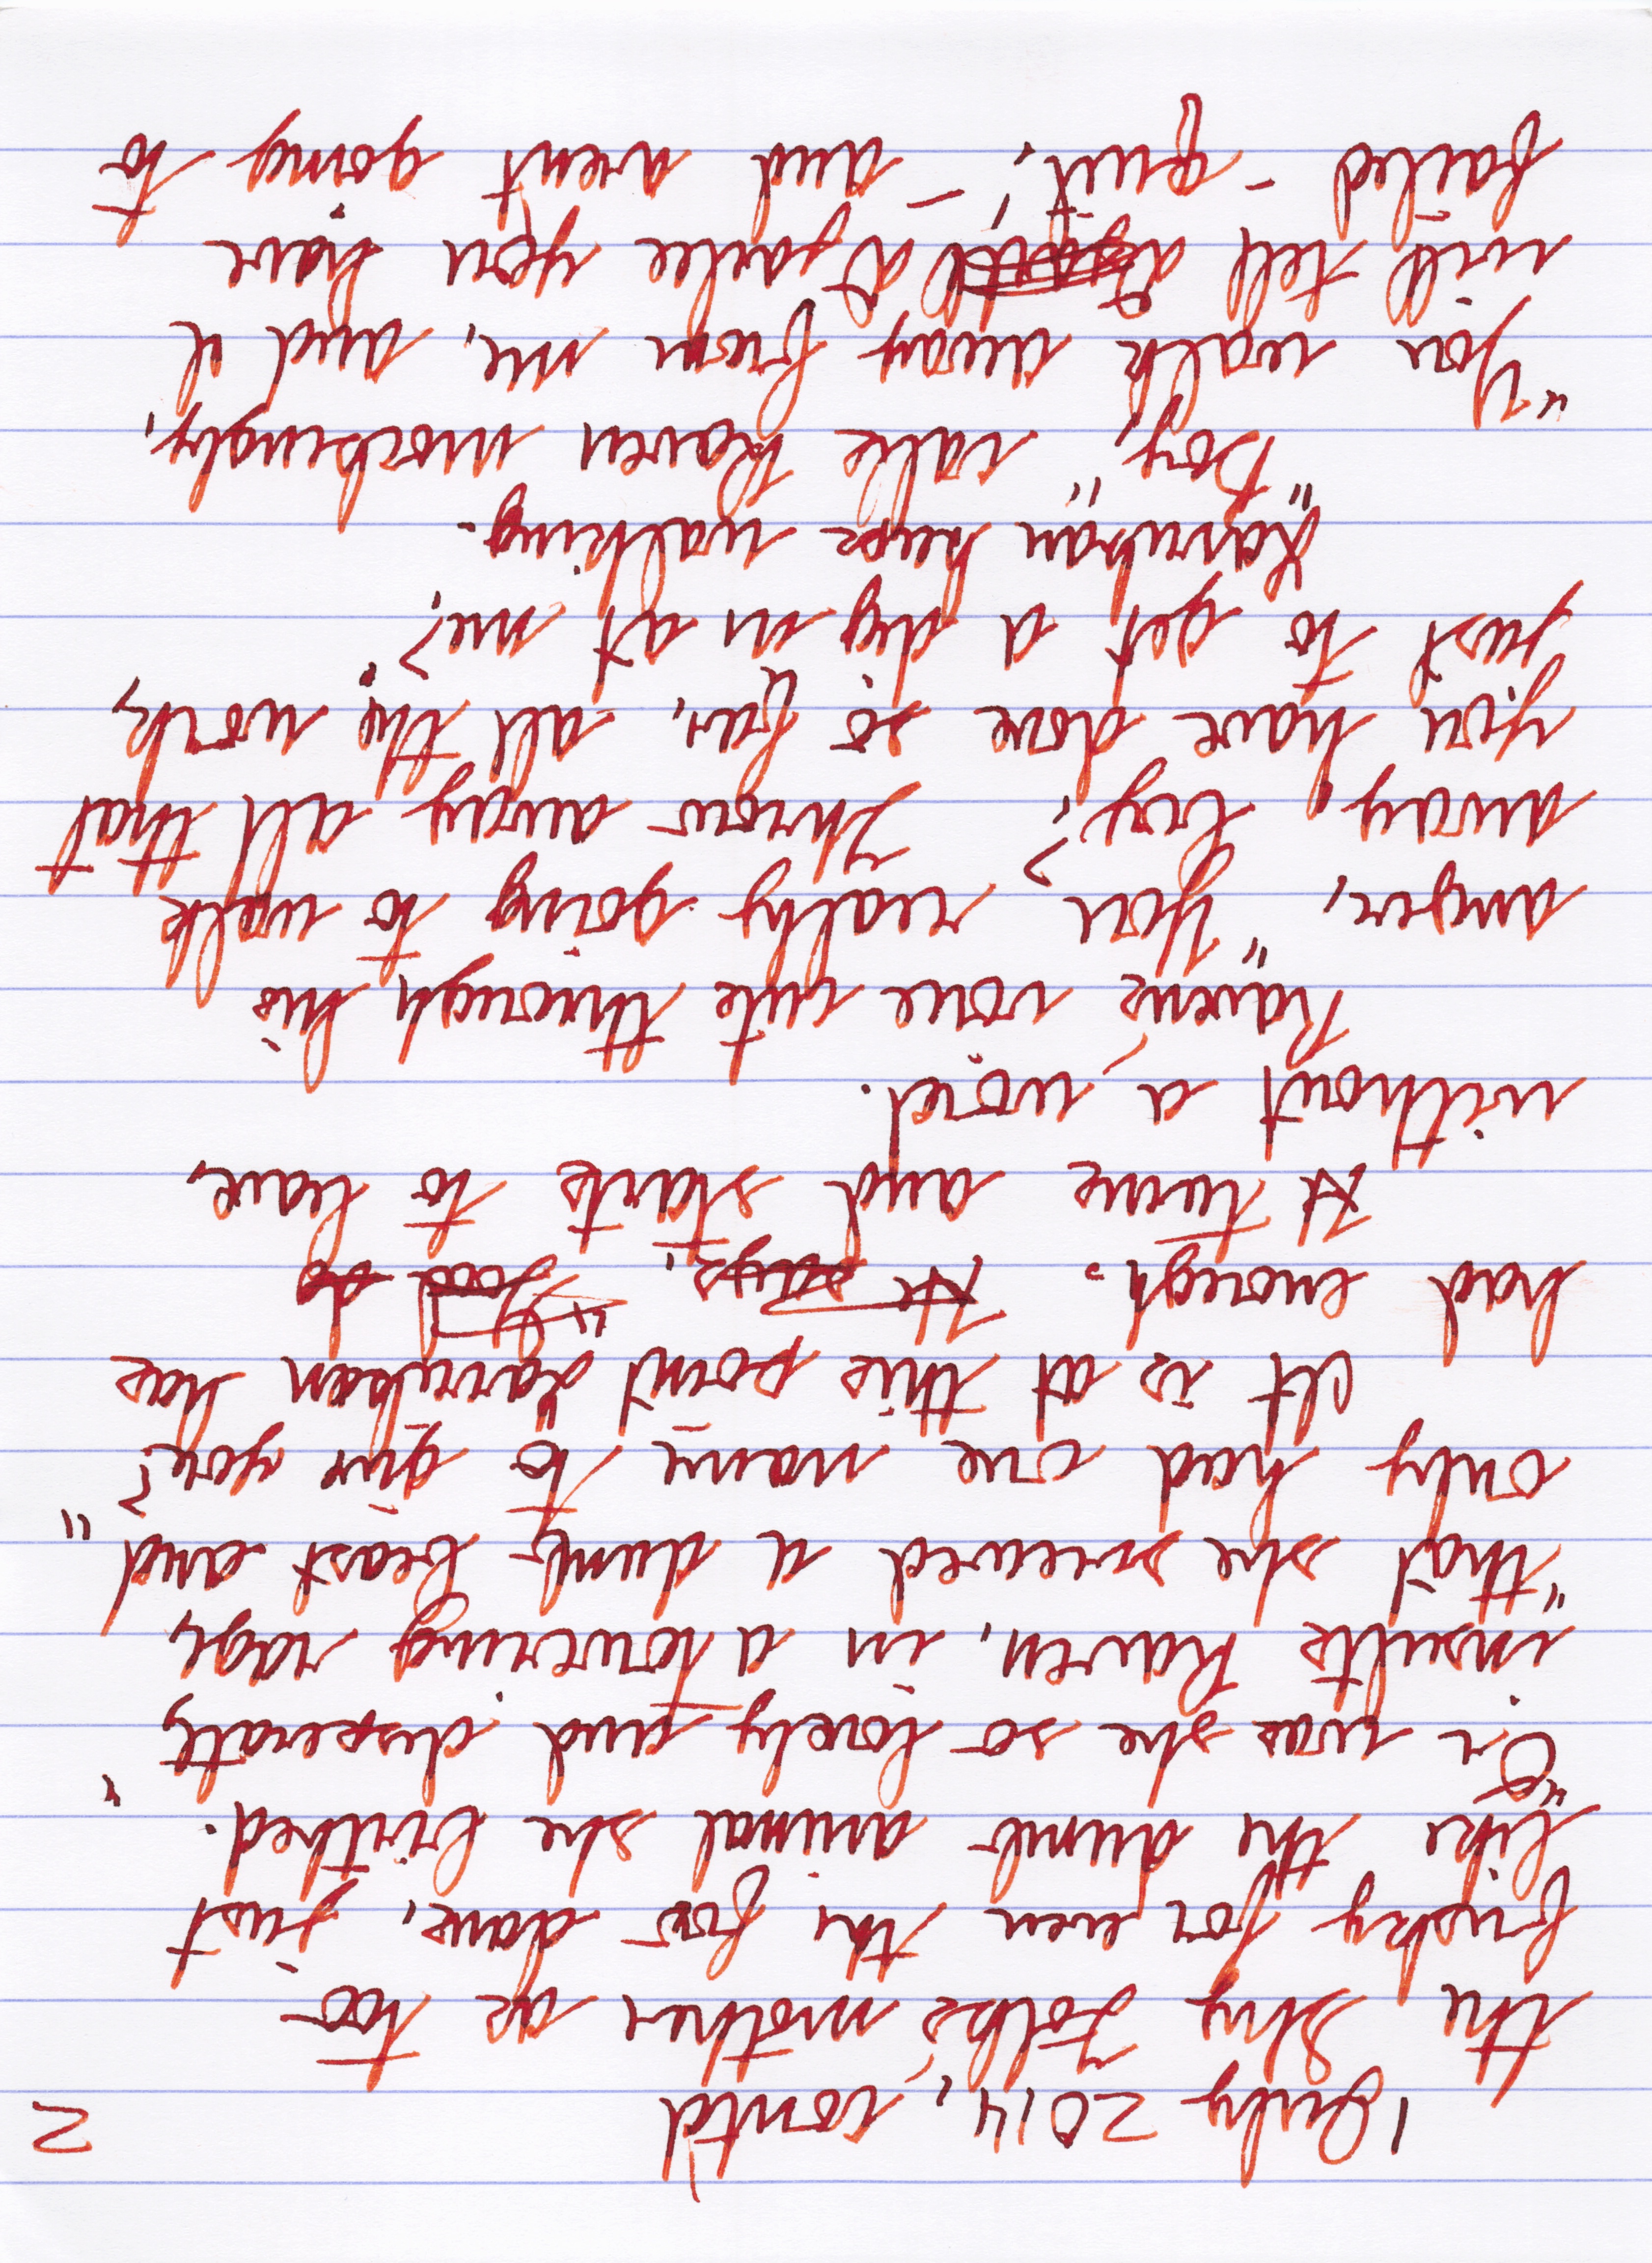 2
1 July 2014, contd
the Shy Folks' mother as too
frisky for even the fox dave, just
like the dumb animal she birthed.
"Or was she so lonely and desperate,"
insults Raven, in a towering rage,
"that she screwed a dumb beast and
only had one name to give you?"
It is at this point Larukan has
had enough. He says, "Good do
H turns and starts to leave,
without a word.
Raven's voice cuts through his
anger, "You really going to walk
away, boy? Throw away all that
you have done so far, all the work,
just to get a dig in at me?"
Larukan keeps walking.
"Boy," calls Raven mockingly,
"You walk away from me, and I
will tell Jackie you have
failed - quit, - and arent going to